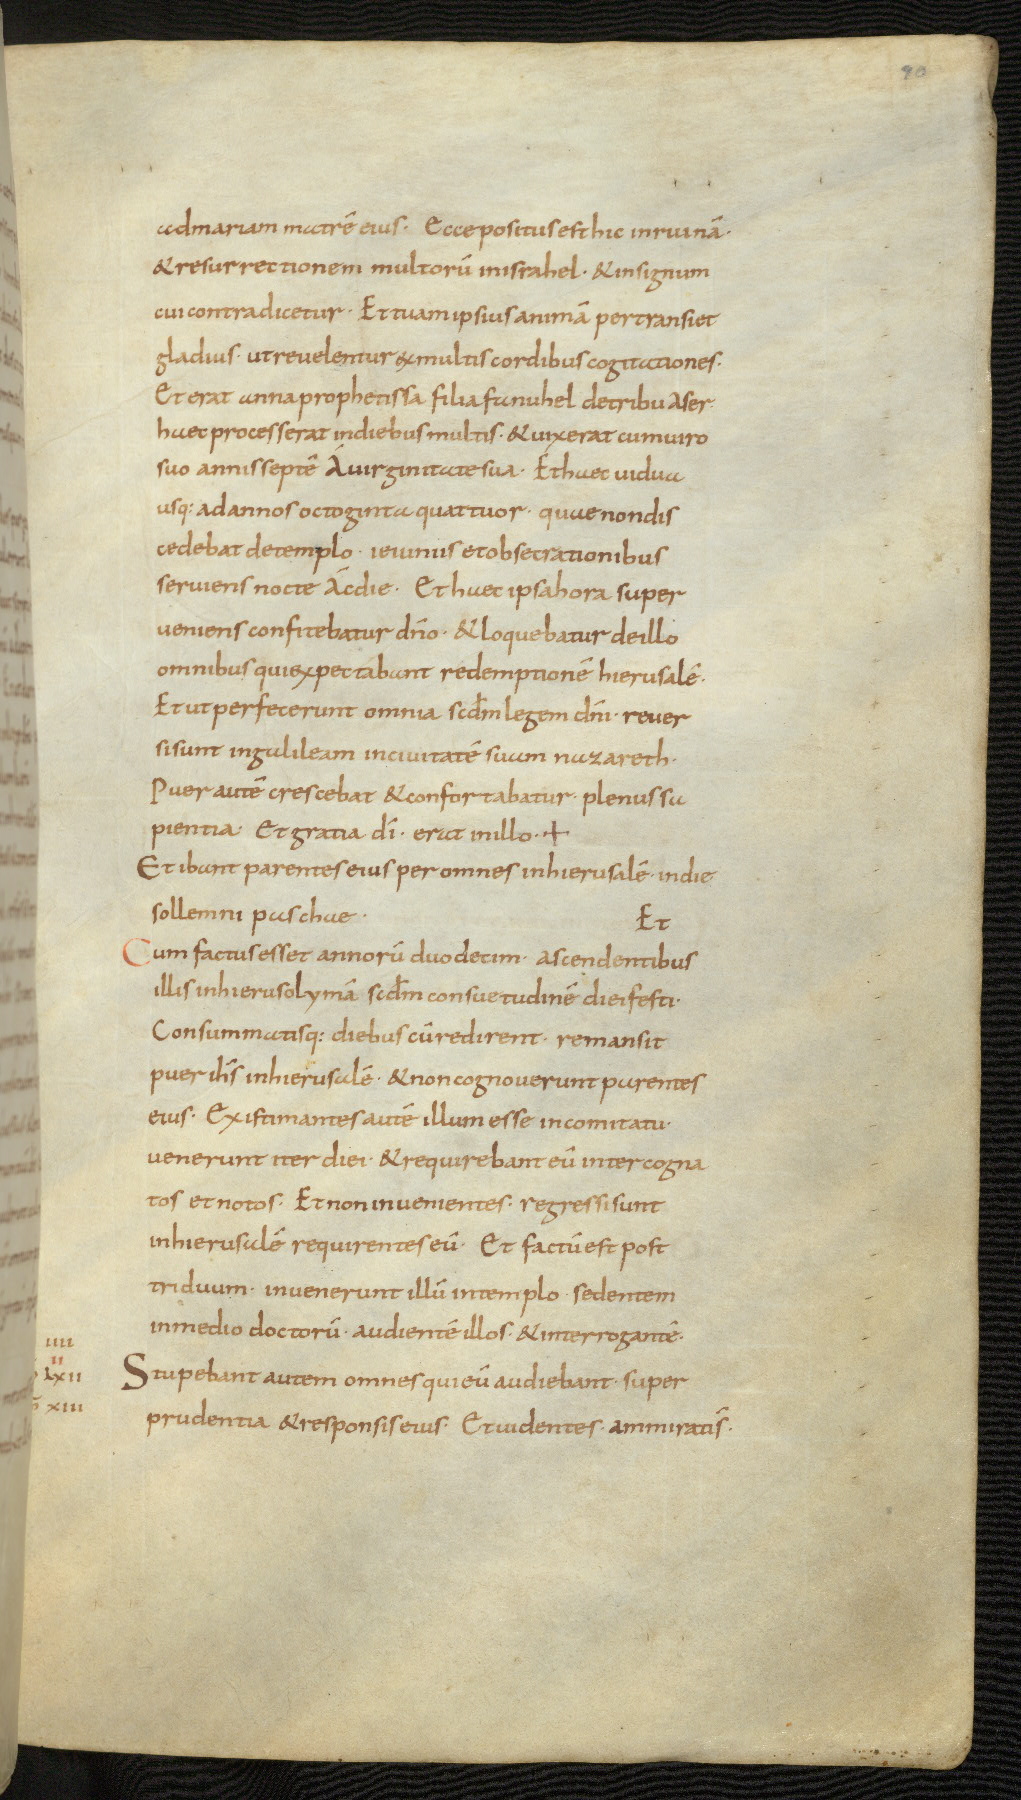 90
admariam matrē eius· Ecce positus est hic inruinā·
& resurrectionem multorū inisrahel· & insignum
cui contradicetur· Et tuam ipsius animā pertransiet
gladius· ut reuelentur ex multis cordibus cogitationes·
Et erat anna prophetissa filia fanuhel detribu Aser·
haec processerat indiebus multis· & uixerat cumuiro
suo annis septē Á uirginitate sua· Et haec uidua
usq: ad annos octoginta quattuor· quae non dis
cedebat detemplo· ieiuniis et obsecrationibus
seruiens nocte Ác die· Et haec ipsa hora super
ueniens confitebatur dn̄o· & loquebatur deillo
omnibus qui expectabant redemptionē hierusalē·
Et ut perfecerunt omnia scd̄m legem dn̄i· reuer
sisunt ingalileam inciuitatē suam nazareth·
Puer autē crescebat & confortabatur· plenus sa
pientia· Et gratia dī· erat inillo·+
Et ibant parentes eius per omnes inhierusalē· indie
sollemni paschae· Et
Cum factus esset annorū duodecim· ascendentibus
illis inhierusolymā scd̄m consuetudinē diei festi·
Consummatisq: diebus cū redirent· remansit
puer ih̄s inhierusalē· & non cognouerunt parentes
eius· Existimantes autē illum esse incomitatu·
venerunt iter diei· & requirebant eū inter cogna
tos et notos· Et non inuenientes· regressi sunt
inhierusalē requirentes eū· Et factū est post
triduum· inuenerunt illū intemplo· sedentem
inmedio doctorū· audientē illos· & interrogantē·
IIII
II
LXII Stupebant autem omnes qui eū audiebant· super
XIII prudentia & responsis eius· Et uidentes· ammiratis̄·